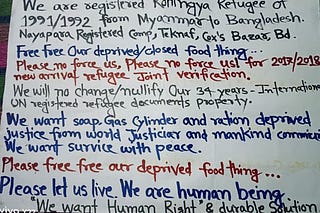 We are registered Rohingya Refugee of
1991/1992 from Myanmar to Bangladesh.
Nayapara Registered Camp, Teknaf, Cox's Bazar, Bd.
Free free Our deprived/closed food thing...
Please no force us, Please no force us! for 2017/2018
new arrival refugee Joint verification.
We will no change/nullify Our 34 years - Internation
UN registered refugee documents property.
We want soap, Gas Cylinder and ration deprived
justice from world Justiciar and mankind communi
We want service with peace.
Please free free our deprived food thing...
Please let us live. We are human being.
"We want Human Right" & durable Solution